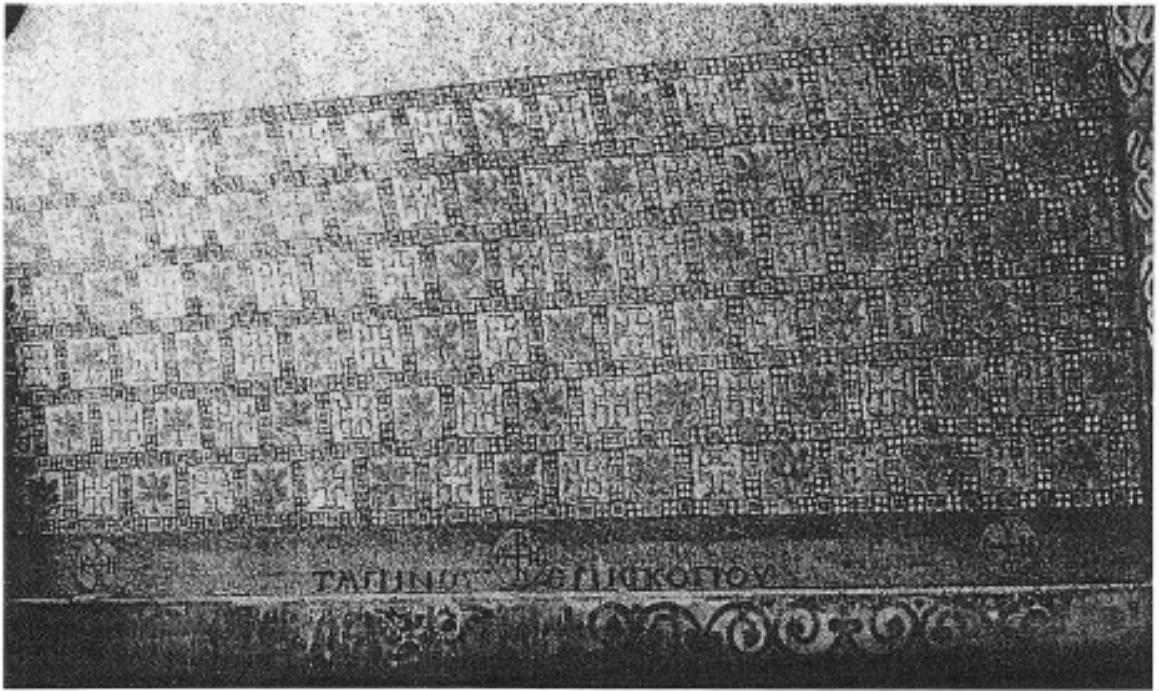 ΤΑΠΗΝΟΥ ЄΠΙCΚΟΠΟΥ